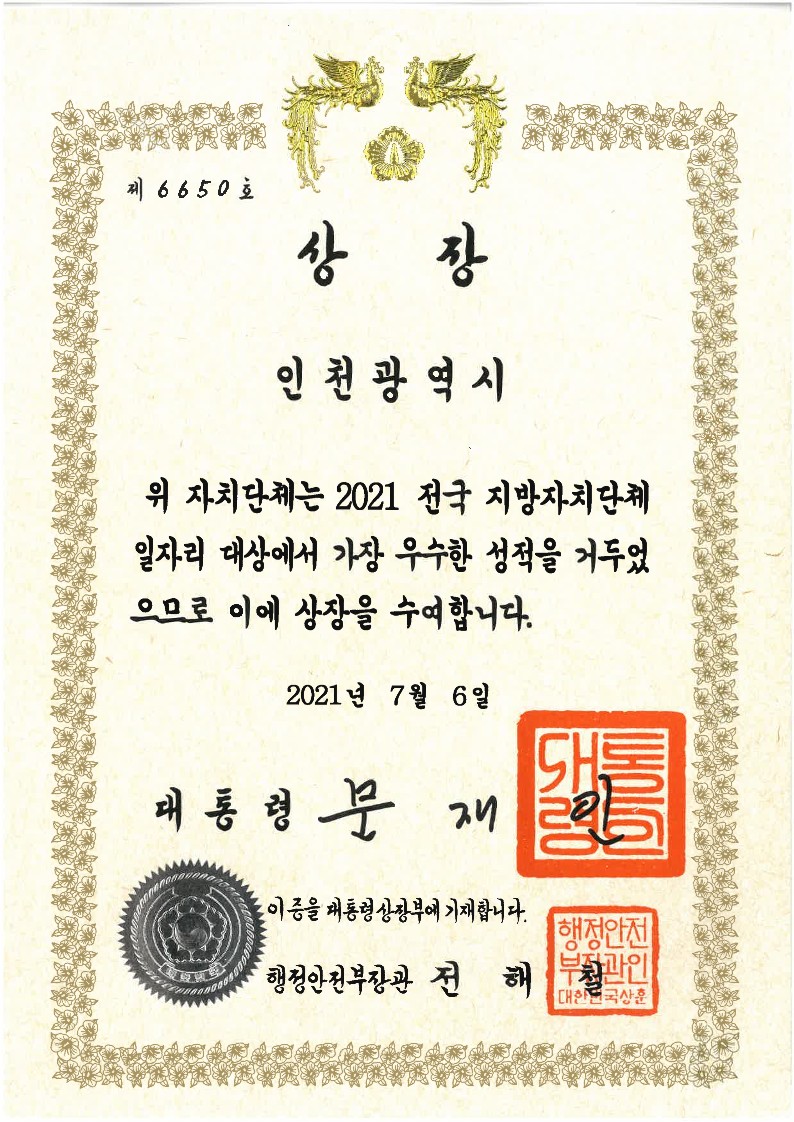 제 6650 호
상 장
인천광역시
위 자치단체는 2021 전국 지방자치단체
일자리 대상에서 가장 우수한 성적을 거두었
으므로 이에 상장을 수여합니다.
2021년 7월 6일
대통령 문 재 인
대통령인
이 증을 대통령상장부에 기재합니다.
행정안전부장관 전 해 철
행정안전
부장관인
대한민국상훈